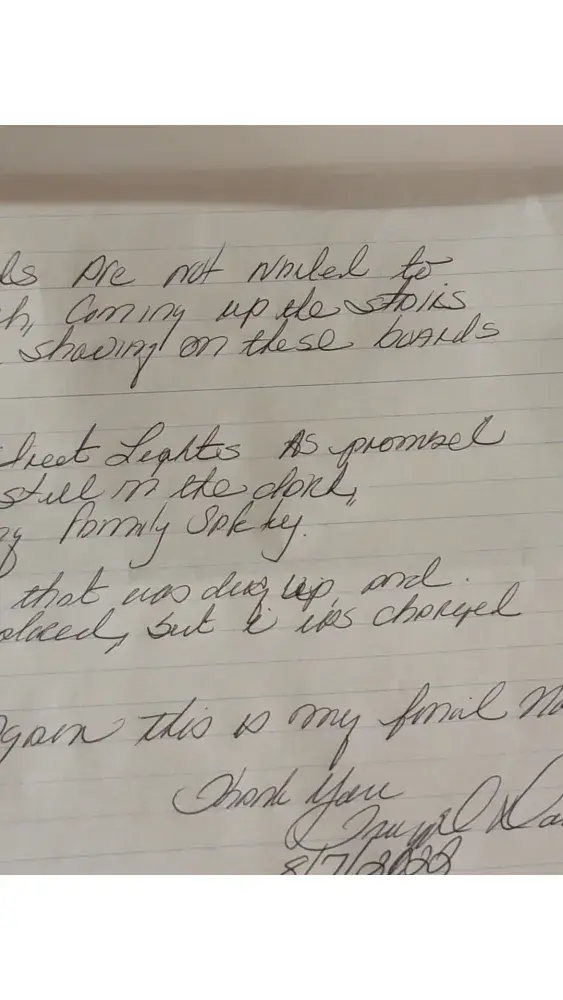 ds are not nailed to
h, Coming up the stairs
showing on these boards
treet Lights As promised
still in the dark,
my family Safety.
that was dug up, and
placed, but I was charged
gain this is my final No
Thank You
8/7/2022